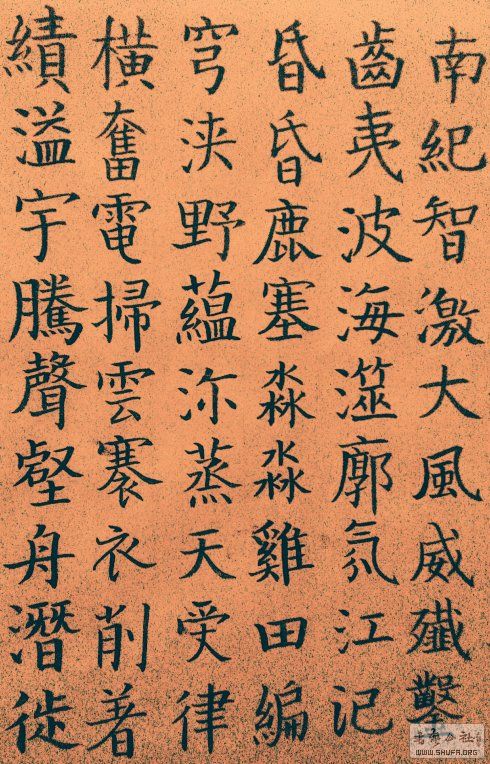 南紀智激大風威殲鑿
齒夷波海澨廓氛江汜
昏昏鹿塞淼淼雞田編
穹浃野蘊沵蒸天受律
橫奮電掃雲褰衣削著
績溢宇騰聲壑舟潛徙
WWW.SHUFA.ORG